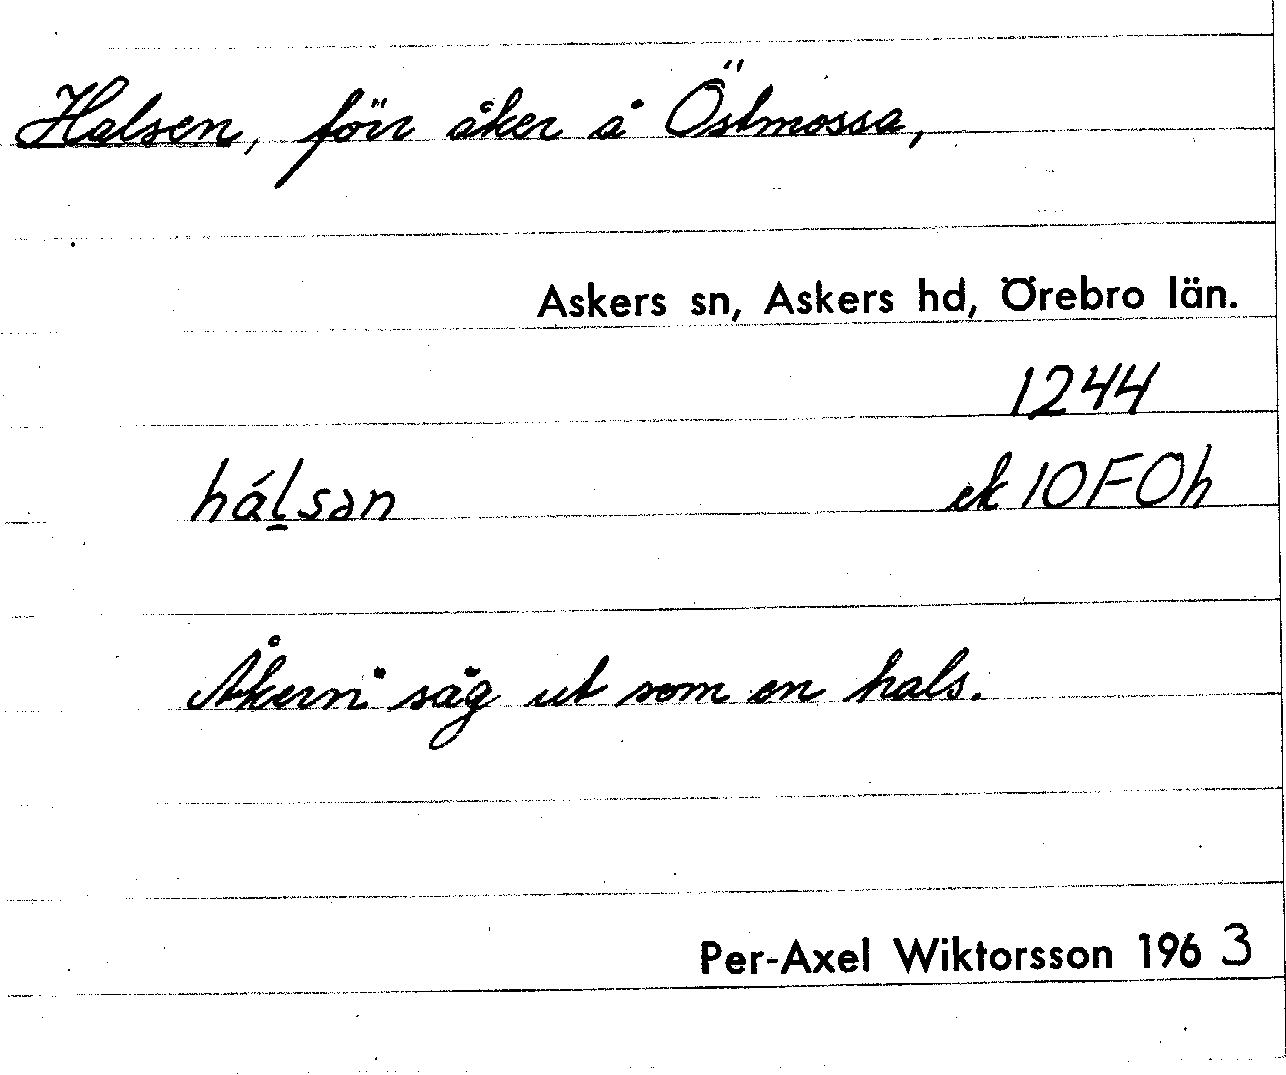 Halsen, förr åker å Östmossa,
Askers sn, Askers hd, Örebro län.
1244
hálsan
ek 10F0h
Åkern såg ut som en hals.
Per-Axel Wiktorsson 1963